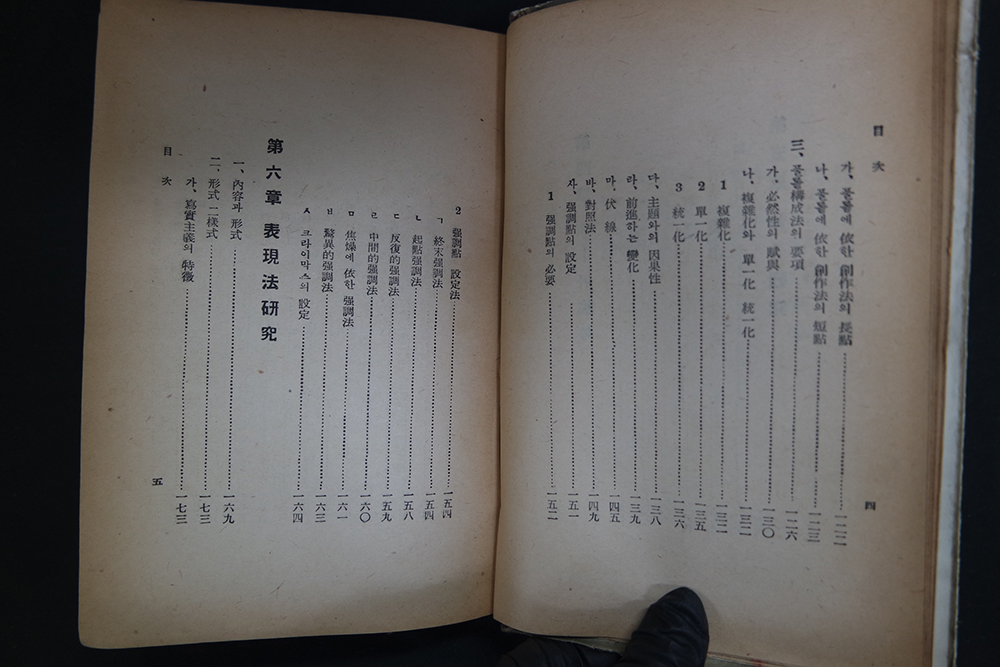 目次
가、풀롤에 依한 創作法의 長點……一二二
나、풀롤에 依한 創作法의 短點……一二三
三、풀롤構成法의 要項……一二六
가、必然性의 賦與……一三〇
나、複雜化와 單一化 統一化……一三二
1 複雜化……一三二
2 單一化……一三五
3 統一化……一三六
다、主題와의 因果性……一三八
라、前進하는 變化……一三九
마、伏線……一四五
바、對照法……一四九
사、强調點의 設定……一五一
1 强調點의 必要……一五二
四
2 强調點 設定法……一五四
ㄱ 終末强調法……一五四
ㄴ 起點强調法……一五八
ㄷ 反復的强調法……一五九
ㄹ 中間的强調法……一六〇
ㅁ 焦燥에 依한 强調法……一六一
ㅂ 驚異的强調法……一六三
ㅅ 크라이막스의 設定……一六四
第六章 表現法硏究
一、內容과 形式……一六九
二、形式二樣式……一七三
가、寫實主義의 特徵……一七三
目次
五